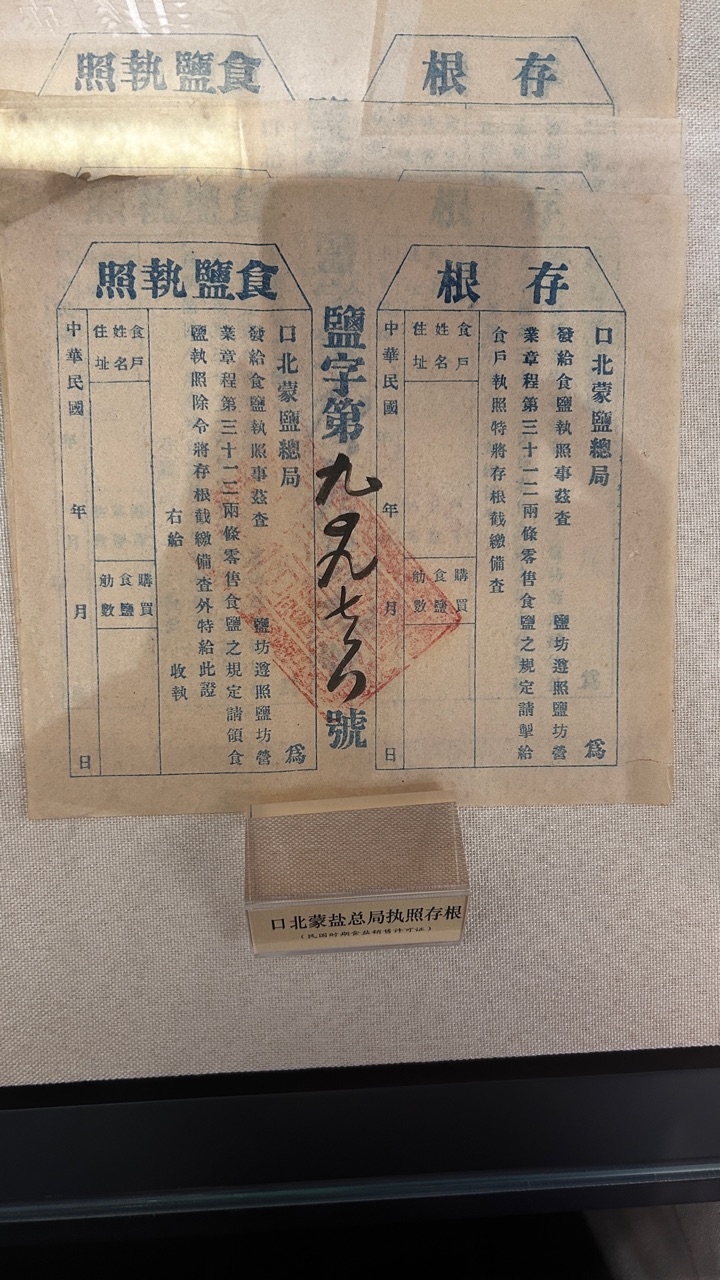 存根
食鹽執照
存根
口北蒙鹽總局 為
發給食鹽執照事茲查 鹽坊遵照鹽坊營
業章程第三十一二兩條零售食鹽之規定請掣給
食戶執照特將存根截繳備查
食戶
姓名
住址
購買
食鹽
觔數
中華民國 年 月 日
鹽字第九 號
食鹽執照
口北蒙鹽總局 為
發給食鹽執照事茲查 鹽坊遵照鹽坊營
業章程第三十一二兩條零售食鹽之規定請領食
鹽執照除令將存根截繳備查外特給此證
右給 收執
食戶
姓名
住址
購買
食鹽
觔數
中華民國 年 月 日
口北蒙盐总局执照存根
(民国时期食盐销售许可证)